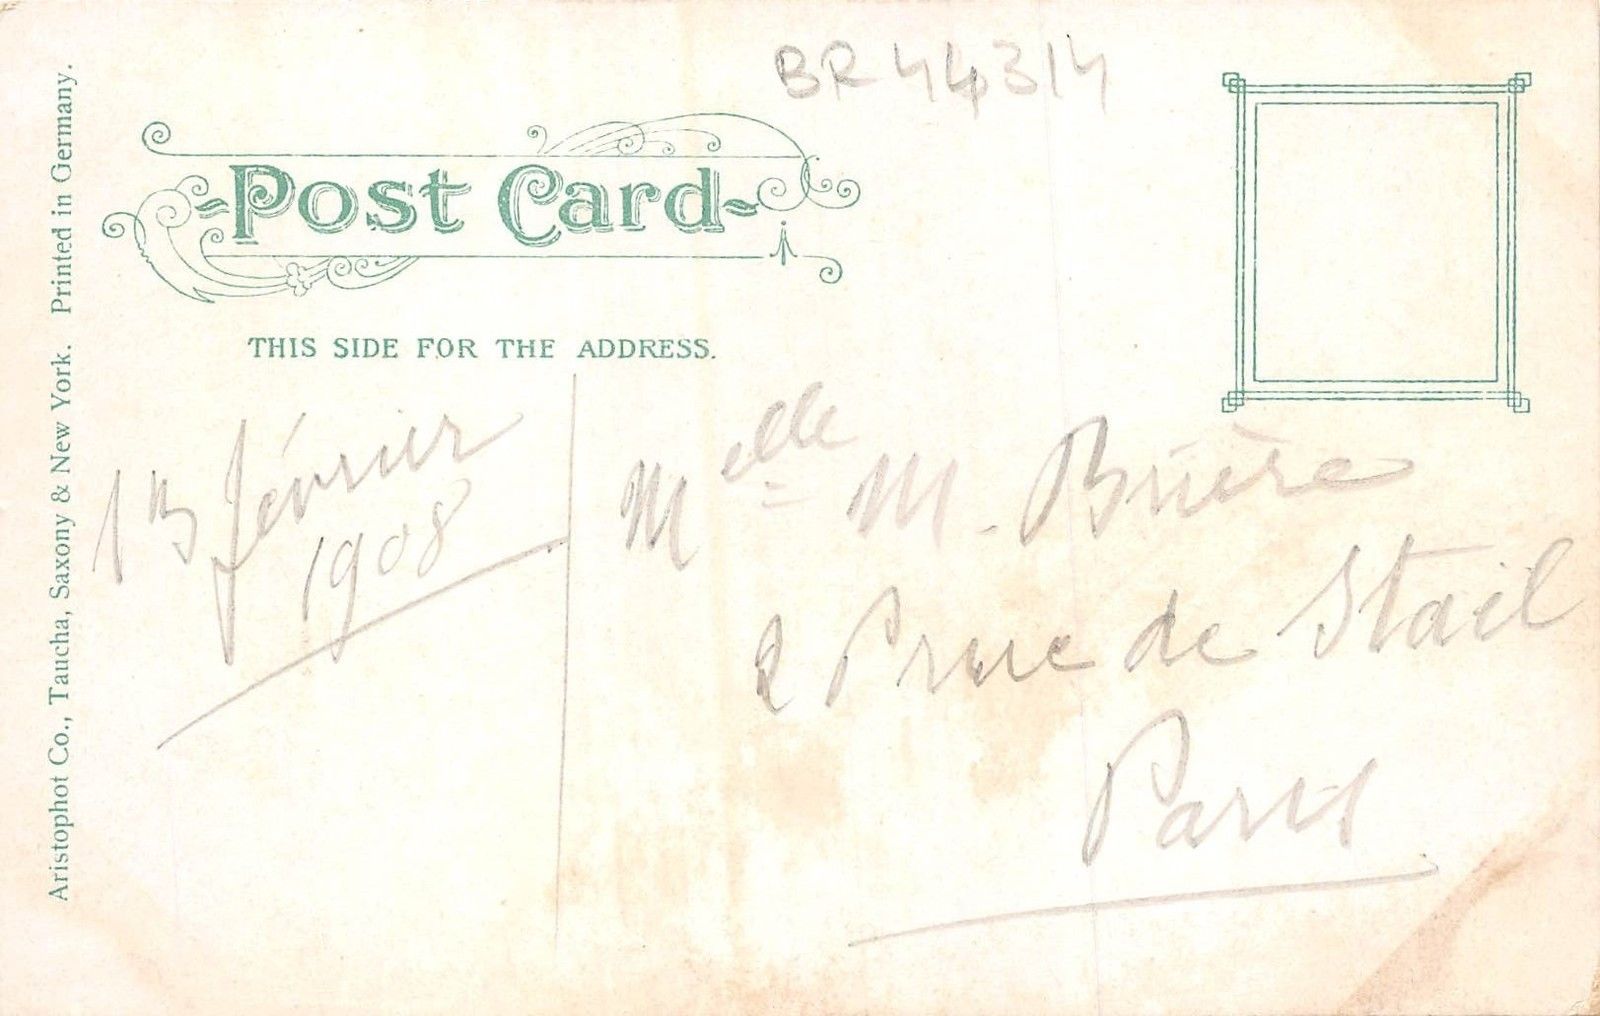 BR 44314
Post Card
THIS SIDE FOR THE ADDRESS.
Aristophot Co., Taucha, Saxony & New York. Printed in Germany.
février
1908
Melle M. Brière
2 rue de Staël
Paris